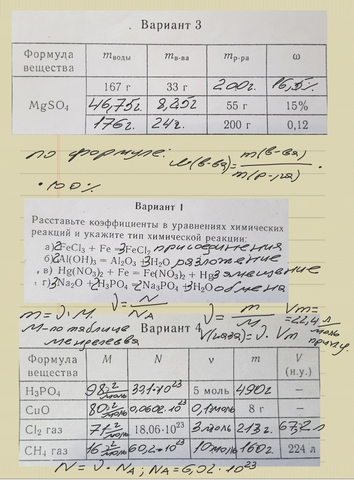 Вариант 3
Формула вещества mводы mв-ва mр-ра ω
MgSO₄ 167 г 33 г 200г. 16,5%
46,75г. 8,25г. 55 г 15%
176г. 24г. 200 г 0,12
по формуле: w(в-ва)= m(в-ва)/m(р-ра)
· 100%
Вариант 1
Расставьте коэффициенты в уравнениях химических
реакций и укажите тип химической реакции:
а) 2FeCl₃ + Fe = 3FeCl₂ присоединения
б) 2Al(OH)₃ = Al₂O₃ + 3H₂O разложение
в) Hg(NO₃)₂ + Fe = Fe(NO₃)₂ + Hg замещение
г) 3Na₂O + 2H₃PO₄ = 2Na₃PO₄ + 3H₂O обмена
m = ν·M. ν = N/NA ν = m/M Vm= =22,4 л/моль
M-по таблице V(газа)=ν·Vm при н.у.
менделеева Вариант 4
Формула вещества M N ν m V (н.у.)
H₃PO₄ 98 г/моль 30,1·10²³ 5 моль 490г –
CuO 80 г/моль 0,602·10²³ 0,1моль 8 г –
Cl₂ газ 71 г/моль 18,06·10²³ 3 моль 213г. 67,2 л
CH₄ газ 16 г/моль 60,2·10²³ 10 моль 160г 224 л
N = ν·NA; NA=6,02·10²³